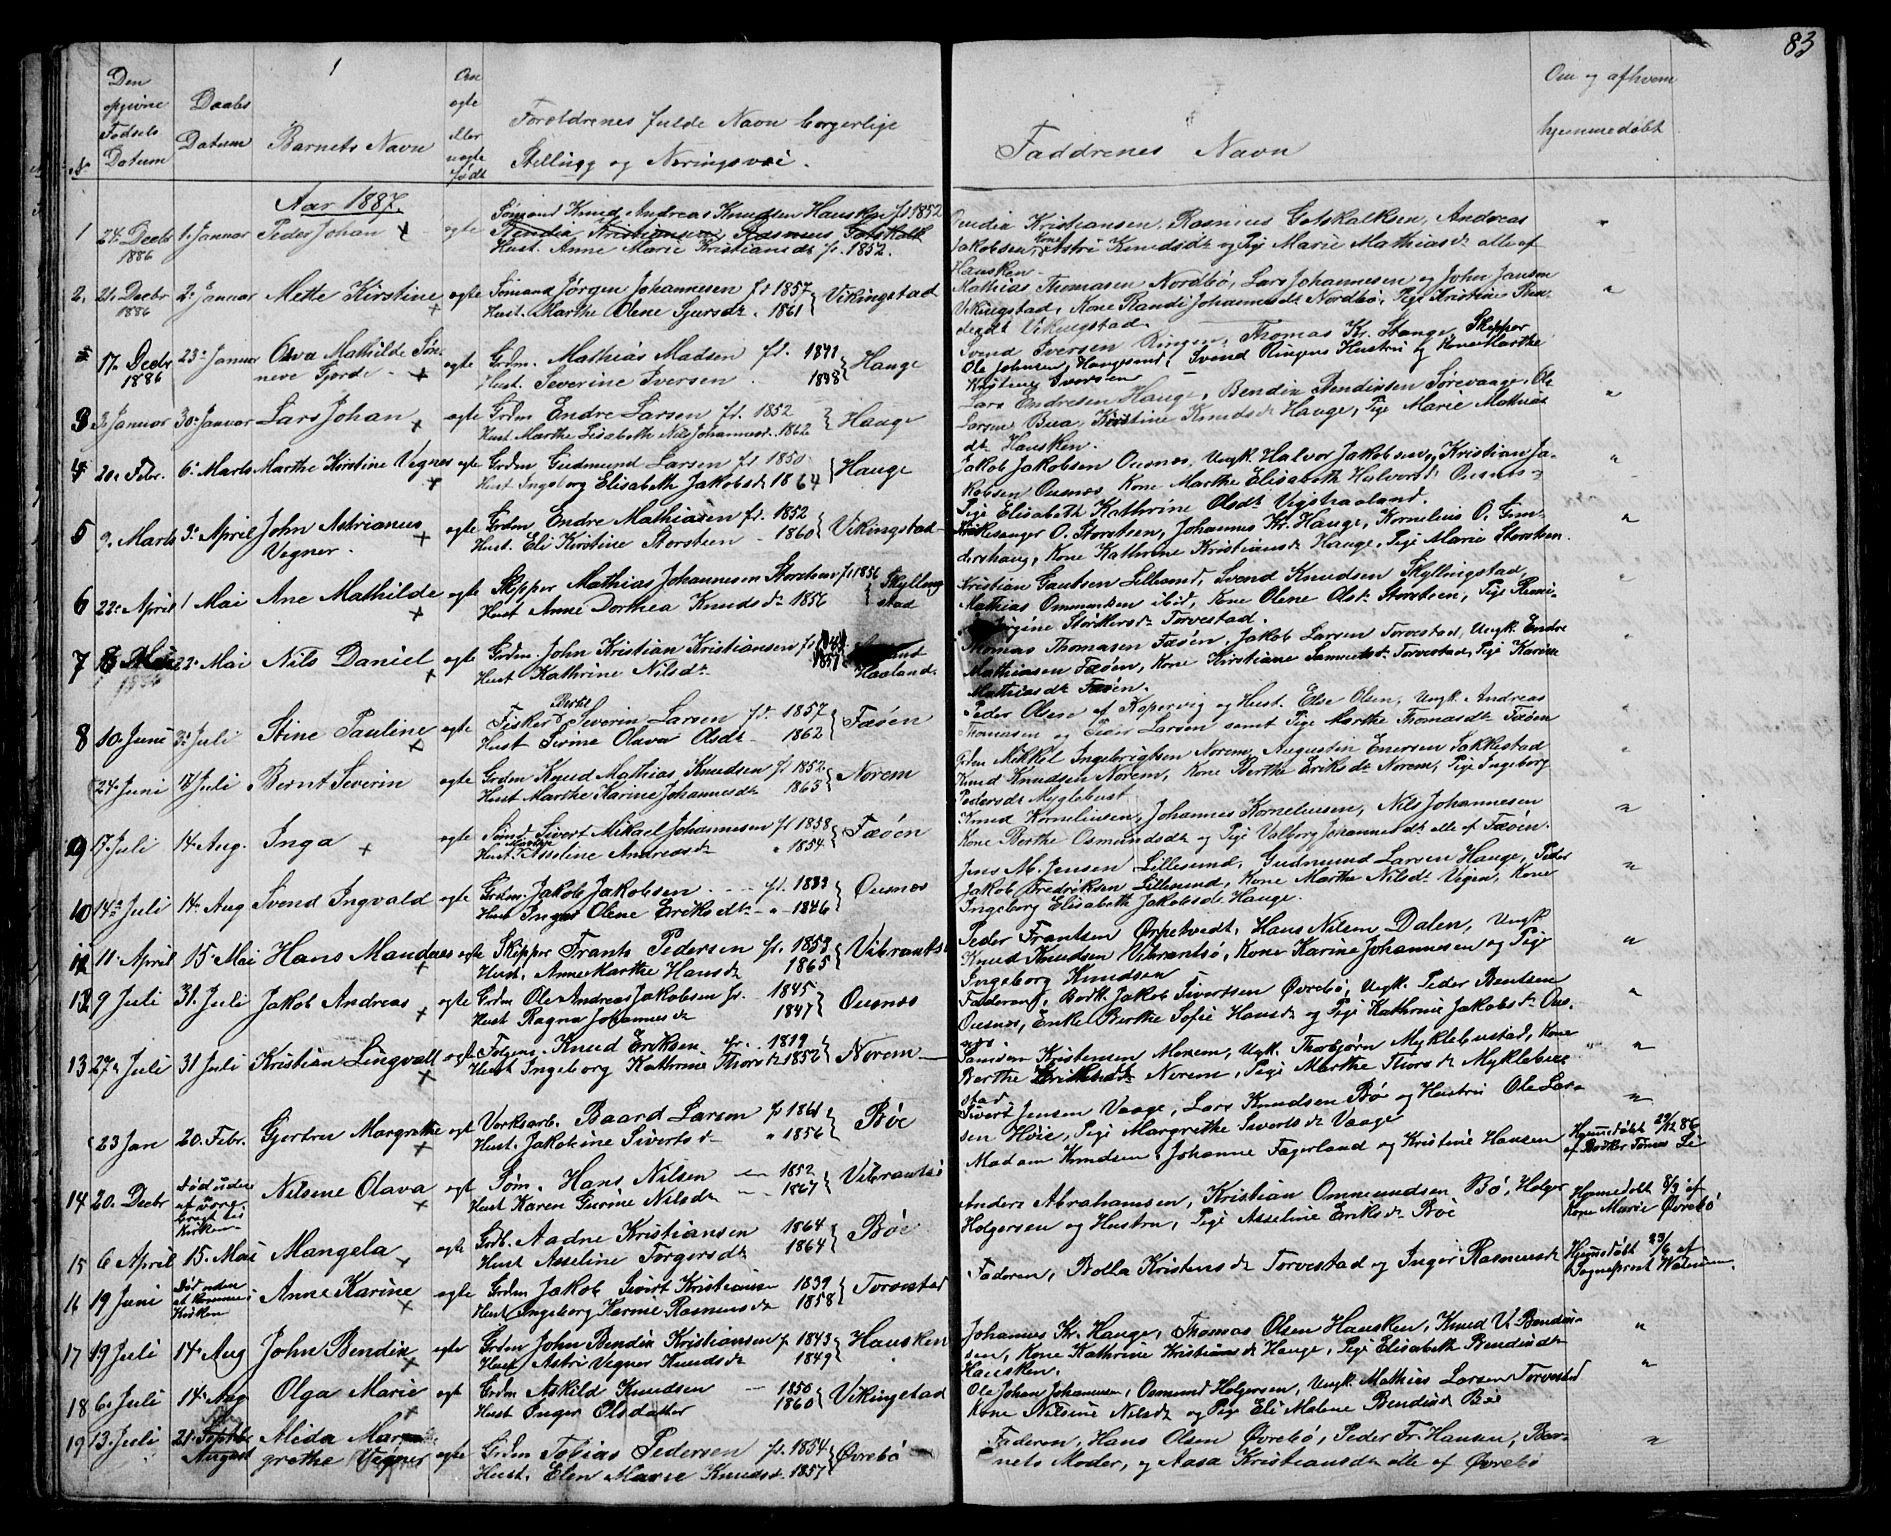 83
Den opgivne Fødsels Datum
Daabs Datum
Barnets Navn
Om ægte eller uægte født
Forældrenes fulde Navn borgerlige
Stilling og Næringsvei.
Faddrenes Navn
Om og af hvem
hjemmedøbt
Aar 1887.
1 24. Decbr 1886 1. Januar Peder Johan ægte Sømand Knud Andreas Knudsen Hausken f. 1852
Hust. Anne Marie Kristiansdt f. 1852.
Kristiansen, Rasmus Gotskalksen, Andreas
Jakobsen Kone Astri Knudsdt og Pige Marie Mathiasdt alle af
Hausken
2. 21. Decbr 1886 2. Januar Mette Kirstine ægte Sømand Jørgen Johannesen fd 1857 Vikingstad
Hust. Marthe Olene Sjursdt. 1861
Mathias Thomasen Nordbø, Lars Johannesen og John Jansen
Vikingstad, Kone Randi Johannesdt Nordbø, Pige Kristine
Vikingstad.
17. Decbr 1886 23. Januar Mathilde ægte Grdm. Mathias Madsen fd. Hauge
Hust. Severine Iversen
Svend Iversen Ringen, Thomas Kr. Stange, Skipper
Ole Johnsen, Haugesund, Svend Ringens Hustru og Kone Marthe
Kristene Iversen
3 3. Januar 30. Januar Lars Johan ægte Grdm Endre Larsen fd. 1852 Hauge
Hust Marthe Lisabeth Nils Johannesdt. 1862
Lars Endresen Hauge, Bendix Bendixsen Sørevaage, Ole
Larsen Bua, Kirstine Knudsdt Hauge, Pige Marie Mathias
dt Hausken.
4 20. Febr. 6. Marts Marthe Kirstine Vegner ægte Grdm. Gudmund Larsen fd 1850 Hauge
Hust Ingeborg Elisabeth Jakobsdt 1864
Jakob Jakobsen Ousnes, Ungk. Halvor Jakobsen, Kristian Ja-
kobsen Ousnes, Kone Marthe Elisabeth Halvorsdt Ousnes
Pige Elisabeth Kathrine Olsdt Vigstraaland.
5 9. Marts 3. April John Astrianus Vegner. ægte Grdm Endre Mathiasen fd. 1852 Vikingstad
Hust. Eli Kirstine Storsteen 1860
O. Storsteen, Johannes Kr. Hauge, Kornelius O.
Kone Kathrine Kristiansdt Hauge, Pige Marie Storsteen.
6 22. April 1 Mai Ane Mathilde ægte Skipper Mathias Johannesen Storsteen fd 1856 Skyllingstad
Hust Anne Dorthea Knudsdt 1856
Kristian Gautsen Lillesund, Svend Knudsen Skyllingstad,
Mathias Ommundsen ibid, Kone Olene Olsdt Storsteen, Pige
Størkersdt Torvestad.
7 22. Mai Nils Daniel ægte Grdm. John Kristian Kristiansen fd Haaland.
Hust Kathrine Nilsdt
Thomas Thomasen Fæøen, Jakob Larsen Torvestad, Ungk. Endre
Mathiasen Fæøen, Kone Kirstiane Samuelsdt Torvestad, Pige Karine
Mathiasdt Fæøen.
8 10. Juni 3. Juli Stine Pauline ægte Fisker Bertel Severin Larsen fd. 1857 Fæøen
Hust Serine Olava Olsdt 1862
Peder Olsen af Kopervig og Hust. Else Olsen, Ungk. Andreas
Thomasen og Peder Larsen samt Pige Marthe Thomasdt Fæøen
24. Juni 17 Juli Bernt Severin ægte Grdm Knud Mathias Knudsen fd 1852 Norem
Hust Marthe Karine Johannesdt 1865
Mikkel Ingebrigtsen Norem, Augustin Enersen Sakkestad
Knud Knudsen Norem, Kone Berthe Eriksdt Norem, Pige Ingeborg
Pedersdt Myglebust
9 17 Juli 14. Aug. Inga ægte Sømd Sivert Mikael Johannesen fd 1858 Fæøen
Hust. Marthe Asseline Andreasdt 1854
Knud Korneliusen, Johannes Korneliusen, Nils Johannesen
Kone Berthe Osmundsdt og Pige Valborg Johannesdt alle af Fæøen.
10 14. Juli 14. Aug Svend Ingvald ægte Grdm. Jakob Jakobsen fd. 1839 Ousnes
Hust Inger Olene Eriksdt 1846
Jens M. Jensen Lillesund, Gudmund Larsen Hauge, Peder
Jakob Fredriksen Lillesund, Kone Marthe Nilsdt Vigen, Kone
Ingeborg Elisabeth Jakobsdt Hauge.
11 11. April 15. Mai Hans Mandenes ægte Skipper Frants Pedersen fd. 1859 Vibrantsø
Hust. Anne Marthe Hansdt 1865
Peder Frantsen Ørpetvedt, Hans Nilsen Dalen, Ungk
Knud Knudsen Vibrantsø, Kone Karine Johannesen og Pige
Ingeborg Knudsen
12 9 Juli 31. Juli Jakob Andreas ægte Grdm Ole Andreas Jakobsen fd. 1845 Ousnes
Hust Ragna Johannesdt 1847
Faderen, Jakob Sivertsen Øvrebø, Ungk. Peder Bentsen
Ousnes, Enke Berthe Sofie Hansdt og Pige Kathrine Jakobsdt Ous-
nes.
13 27. Juli 31 Juli Kristian Lingvall ægte Knud Eriksen fd. 1819 Norem
Hust Ingeborg Kathrine Thorsdt 1852
Samson Kristensen Norem, Ungk. Thorbjørn Myklebustad, Kone
Berthe Eriksdt Norem, Pige Marthe Thorsdt Myklebu-
stad.
23 Jan 20. Febr. Gjertru Margrethe ægt Verksarb. Baard Larsen fd 1861 Bøe
Hust. Jakobine Sivertsdt 1856
Sivert Jensen Vaage, Lars Knudsen Bø og Hustru Ole Lar-
sen Høie, Pige Margrethe Sivertsdt Vaage
14 20. Decbr Nilsine Olava ægt Søm. Hans Nilsen 1852 Vibrantsø
Hust Karen Gurine Nilsdt 1867
Madam Knudsen, Johanne Fagerland og Kristine Hansen
Hjemmedøbt 23/12 86
15 6 April 15. Mai Mangela ægte Grdb. Aadne Kristiansen 1864 Bøe
Hust Asseline Torgersdt 1864
Anders Abrahamsen, Kristian Ommundsen Bø, Holger
Holgersen og Hustru, Pige Asseline Eriksdt Bøe
Hjemmedøbt 8/4 af
Kone Marie Øvrebø
16 19 Juni Anne Karine ægte Grdm Jakob Sivert Kristiansen 1839 Torvestad
Hust Ingeborg Karine Rasmusdt 1858
Faderen, Bolla Kristensdt Torvestad og Inger Rasmusdt
Hjemmedøbt 23/6 af
Sogneprest
17 19 Juli 14. Aug John Bendix ægte Grdm John Bendix Kristiansen fd 1843 Hausken
Hust Astri Vegner Knudsdt 1849
Johannes Kr. Hauge, Thomas Olsen Hausken, Knud V. Bendix-
sen, Kone Kathrine Kristiansdt Hauge, Pige Elisabeth Bendixdt
Hausken.
18 6. Juli 14. Aug Olga Marie ægt Grdm Askild Knudsen 1850 Vikingstad
Hust Inger Olsdatter 1860
Ole Johan Johannesen, Osmund Holgersen, Ungk. Mathias Larsen Torvestad
Kone Nilsine Nilsdt og Pige Eli Malene Bendixdt Bøe
19 13. Juli 21. August Alida Margrethe Vegner ægte Grdm Tobias Pedersen fd. 1854 Øvrebø
Hust. Elen Marie Knudsdt. 1857
Faderen, Hans Olsen Øvrebø, Peder Fr. Hansen, Bar-
nets Moder, og Aasa Kristiansdt alle af Øvrebø